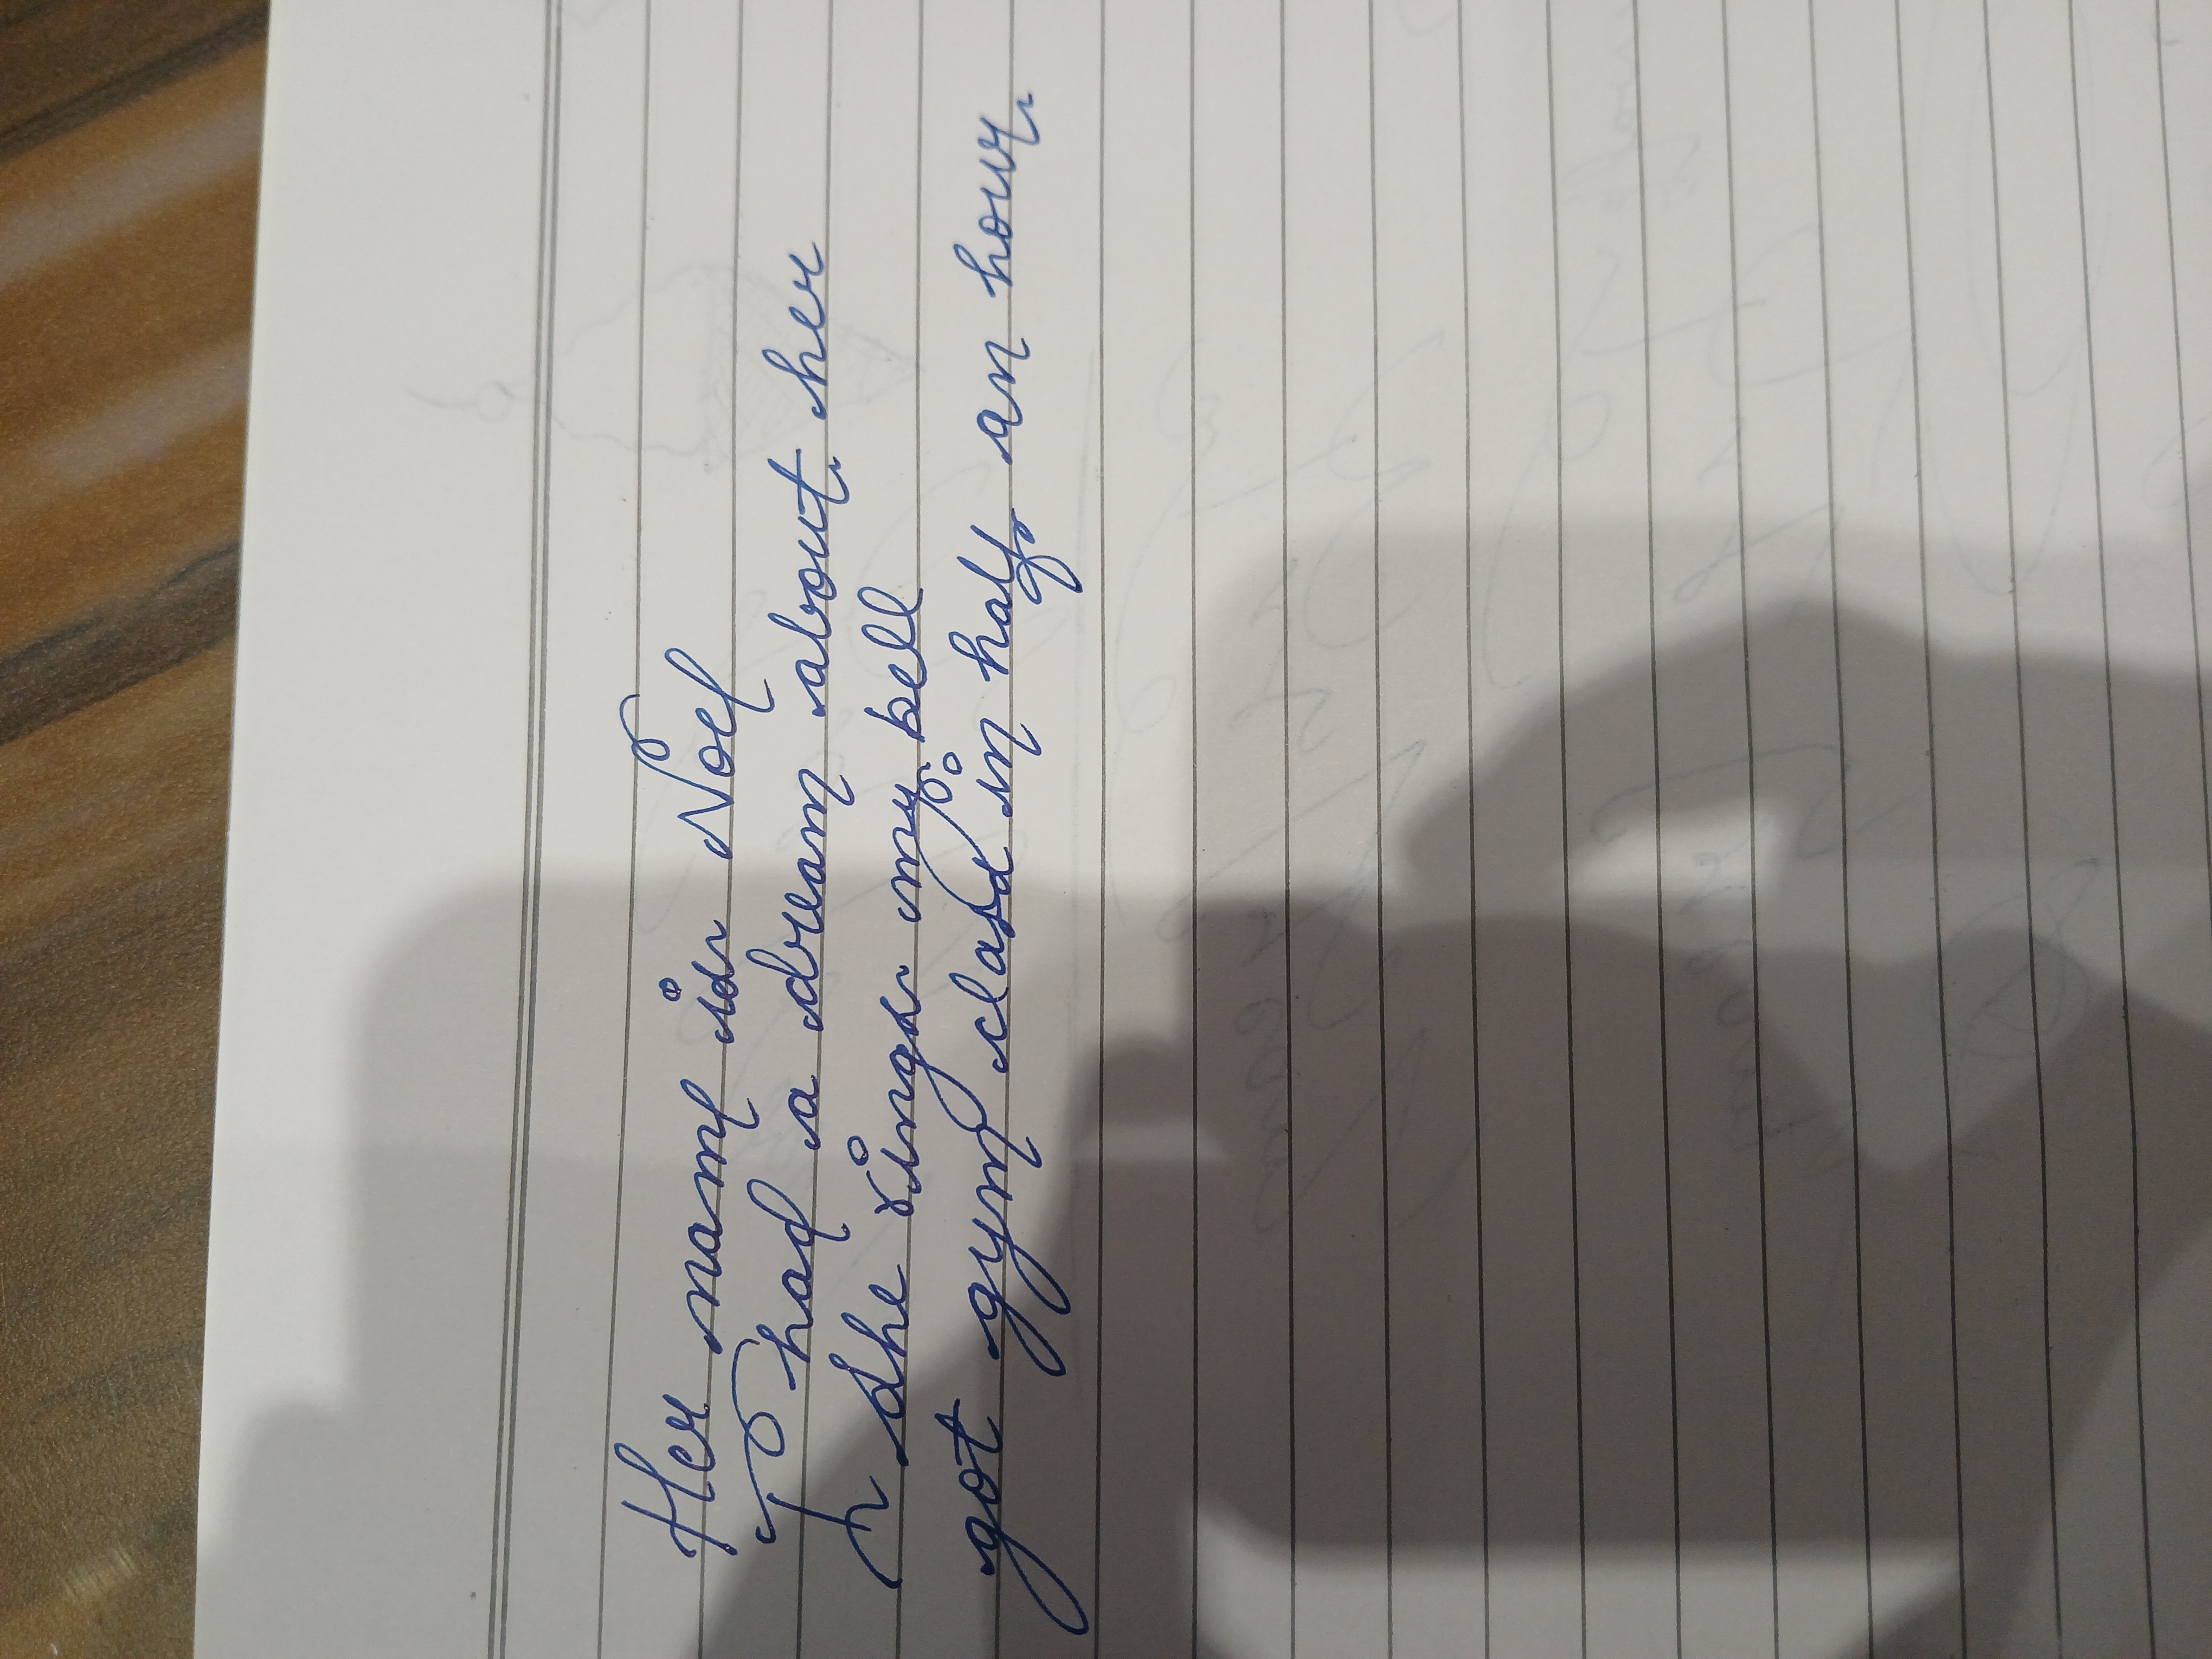 Her name is Noel
I had a dream about her
she rings my bell
got gym class in half an hour